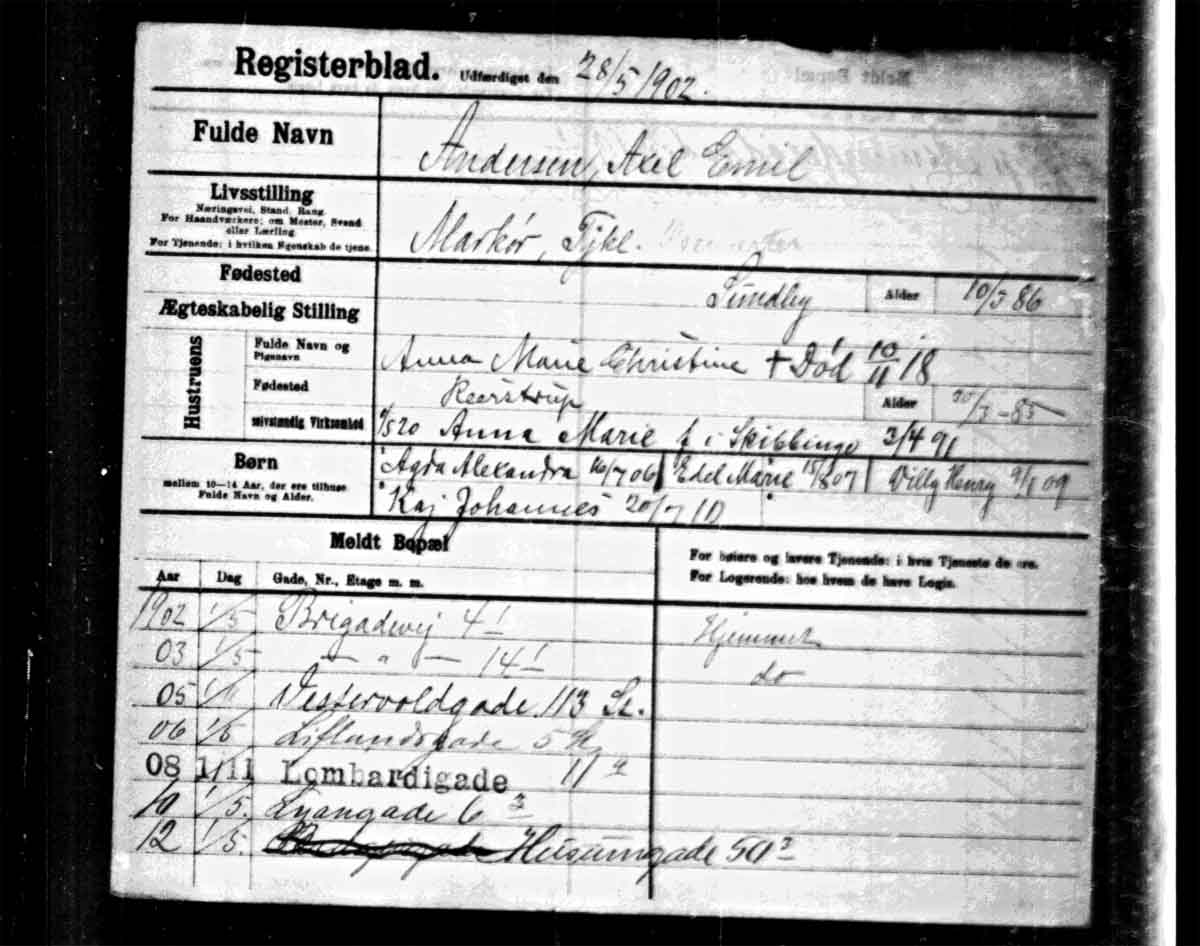 Registerblad. Udfærdiget den 28/5 1902.
Fulde Navn Andersen, Axel Emil
Livsstilling
Næringsvei, Stand, Rang.
For Haandværkere: om Mester, Svend
eller Lærling.
For Tjenende: i hvilken Egenskab de tjene.
Markør, Tjkl.
Fødested Sundby Alder 10/3 86
Ægteskabelig Stilling
Hustruens
Fulde Navn og
Pigenavn
Anna Marie Christine + Død 10/11 18
Fødested Reerstrup Alder /3-85
selvstændig Virksomhed /520 Anna Marie f i Skibbinge 3/4 91
Børn
mellem 10–14 Aar, der ere tilhuse
Fulde Navn og Alder.
Agda Alexandra 16/7 06 Edel Marie 15/8 07 Villy Henry 9/1 09
Kaj Johannes 20/7 10
Meldt Bopæl
For høiere og lavere Tjenende: i hvis Tjeneste de ere.
For Logerende: hos hvem de have Logis.
Aar Dag Gade, Nr., Etage m. m.
1902 1/5 Brigadevej 4 1 Hjemmet
03 1/5 — " — 14 1 do
05 1/11 Vestervoldgade 113 St.
06 1/5 Liflandsgade 5
08 1/11 Lombardigade 11
10 1/5. Lyongade 6 3
12 1/5. Husumgade 50 3